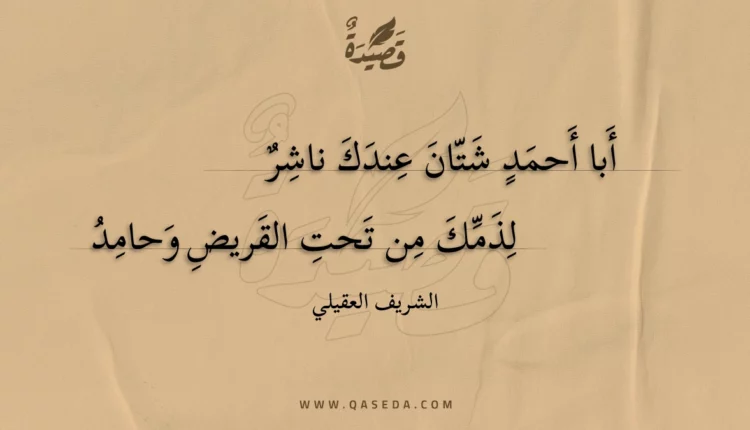 قَصِيْدَةٌ
أَبا أَحمَدٍ شَتّانَ عِندَكَ ناشِرٌ
لِذَمِّكَ مِن تَحتِ القَريضِ وَحامِدُ
الشريف العقيلي
WWW.QASEDA.COM